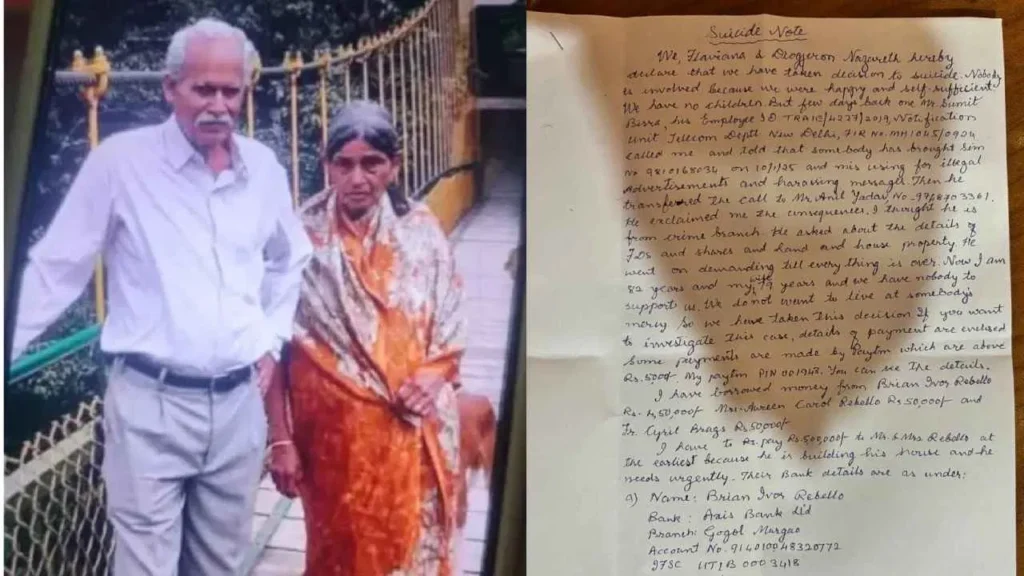 Suicide Note
We, Flaviana & Nazareth hereby
declare that we have taken decision to suicide. Nobody
is involved because we were happy and self-sufficient.
We have no children. But few days back one Mr. Sumit
Birra, his Employee ID TRAIC/4227/2019, Notification
Unit Telecom Deptt New Delhi, FIR No. MH 1045/0924
called me and told that somebody has brought Sim
No 9810168034 on 10/1/25 and mis using for illegal
Advertisements and harassing messages. Then he
transferred the call to Mr. Anil Yadav No. 3361.
He exclaimed me the consequences. I thought he is
from crime branch. He asked about the details of
FDs and shares and land and house property. He
went on demanding till every thing is over. Now I am
82 years and my wife 79 years and we have nobody to
support us. We do not went to live at somebody's
mercy so we have taken this decision. If you want
to investigate this case, details of payment are enclosed
Some payments are made by Paytm which are above
Rs. 5000/- My paytm PIN 001942. You can see the details.
I have borrowed money from Brian Ivor Rebello
Rs. 4,50,000/- Mrs. Carol Rebello Rs 50,000/- and
Fr. Cyril Rs 50,000/-
I have to Re. pay Rs 500,000/- to Mr & Mrs Rebello at
the earliest because he is building his house and he
needs urgently. Their Bank details are as under:
a) Name: Brian Ivor Rebello
Bank: Axis Bank Ltd
Branch: Gogol Murgao
Account No. 914010948320772
IFSC UTIB 0003418